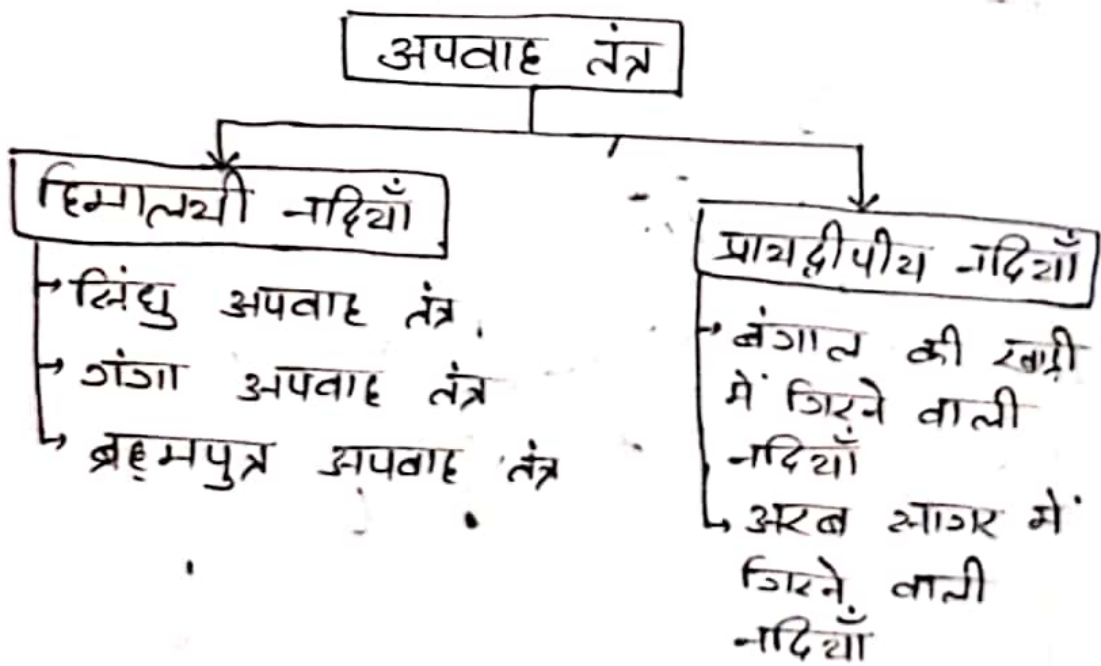 अपवाह तंत्र
हिमालयी नदियाँ
सिंधु अपवाह तंत्र
गंगा अपवाह तंत्र
ब्रह्मपुत्र अपवाह तंत्र
प्रायद्वीपीय नदियाँ
बंगाल की खाड़ी
में गिरने वाली
नदियाँ
अरब सागर में
गिरने वाली
नदियाँ